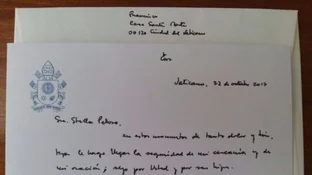 Francisco
Casa Santa Marta
00120 Ciudad del Vaticano
Vaticano, 22 de octubre 2017
Sra. Stella Peloso
en estos momentos de tanto dolor y
hago llegar la seguridad de mi cercanía y de
mi oración; rezo por Usted y por sus hijos.